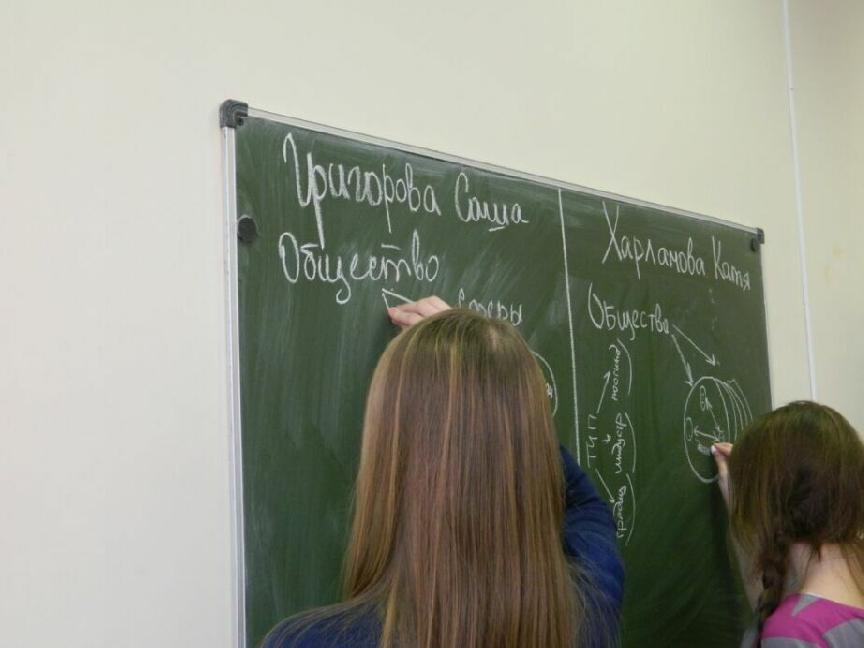 Григорова Саша
Общество
сферы
Харламова Катя
Общество
ТИП
традиц
индустр
постинд